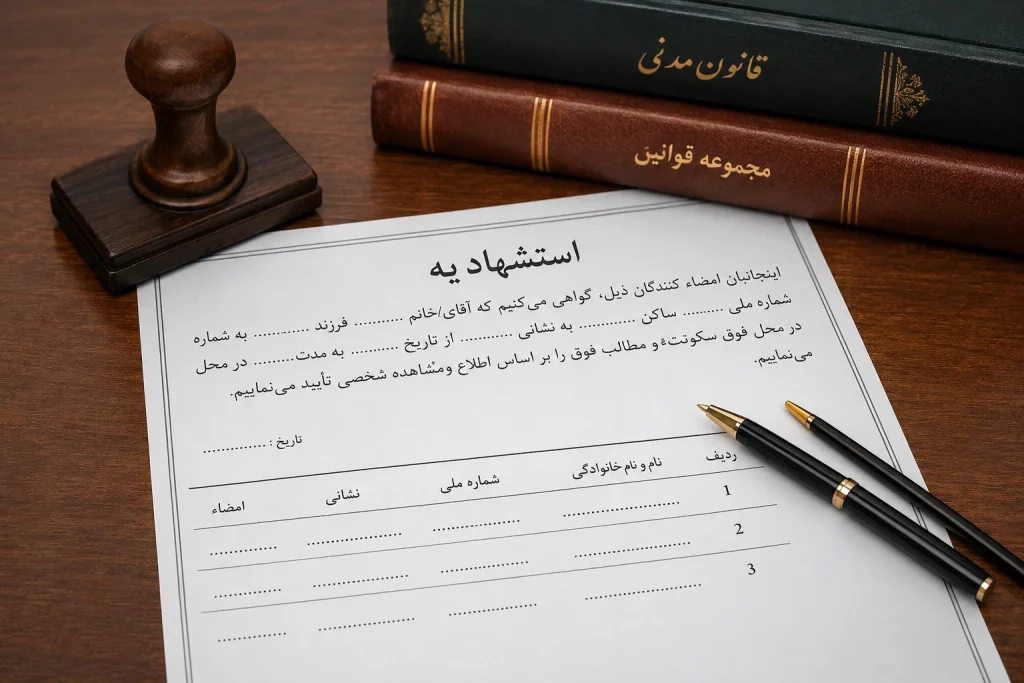 قانون مدنی
مجموعه قوانین
استشهاد یه
اینجانبان امضاء کنندگان ذیل، گواهی می‌کنیم که آقای/خانم .......... فرزند .......... به شماره
شماره ملی ......... ساکن ............ به نشانی ............ از تاریخ .......... به مدت.......... در محل
در محل فوق سکوتتهٔ و مطالب فوق را بر اساس اطلاع ومشاهده شخصی تأیید می‌نماییم.
می‌نماییم.
تاریخ : .............
ردیف نام و نام خانوادگی شماره ملی نشانی امضاء
1 ........................ .................. ................... ..............
2 ........................ .................. ................... ..............
3 ........................ .................. ................... ..............